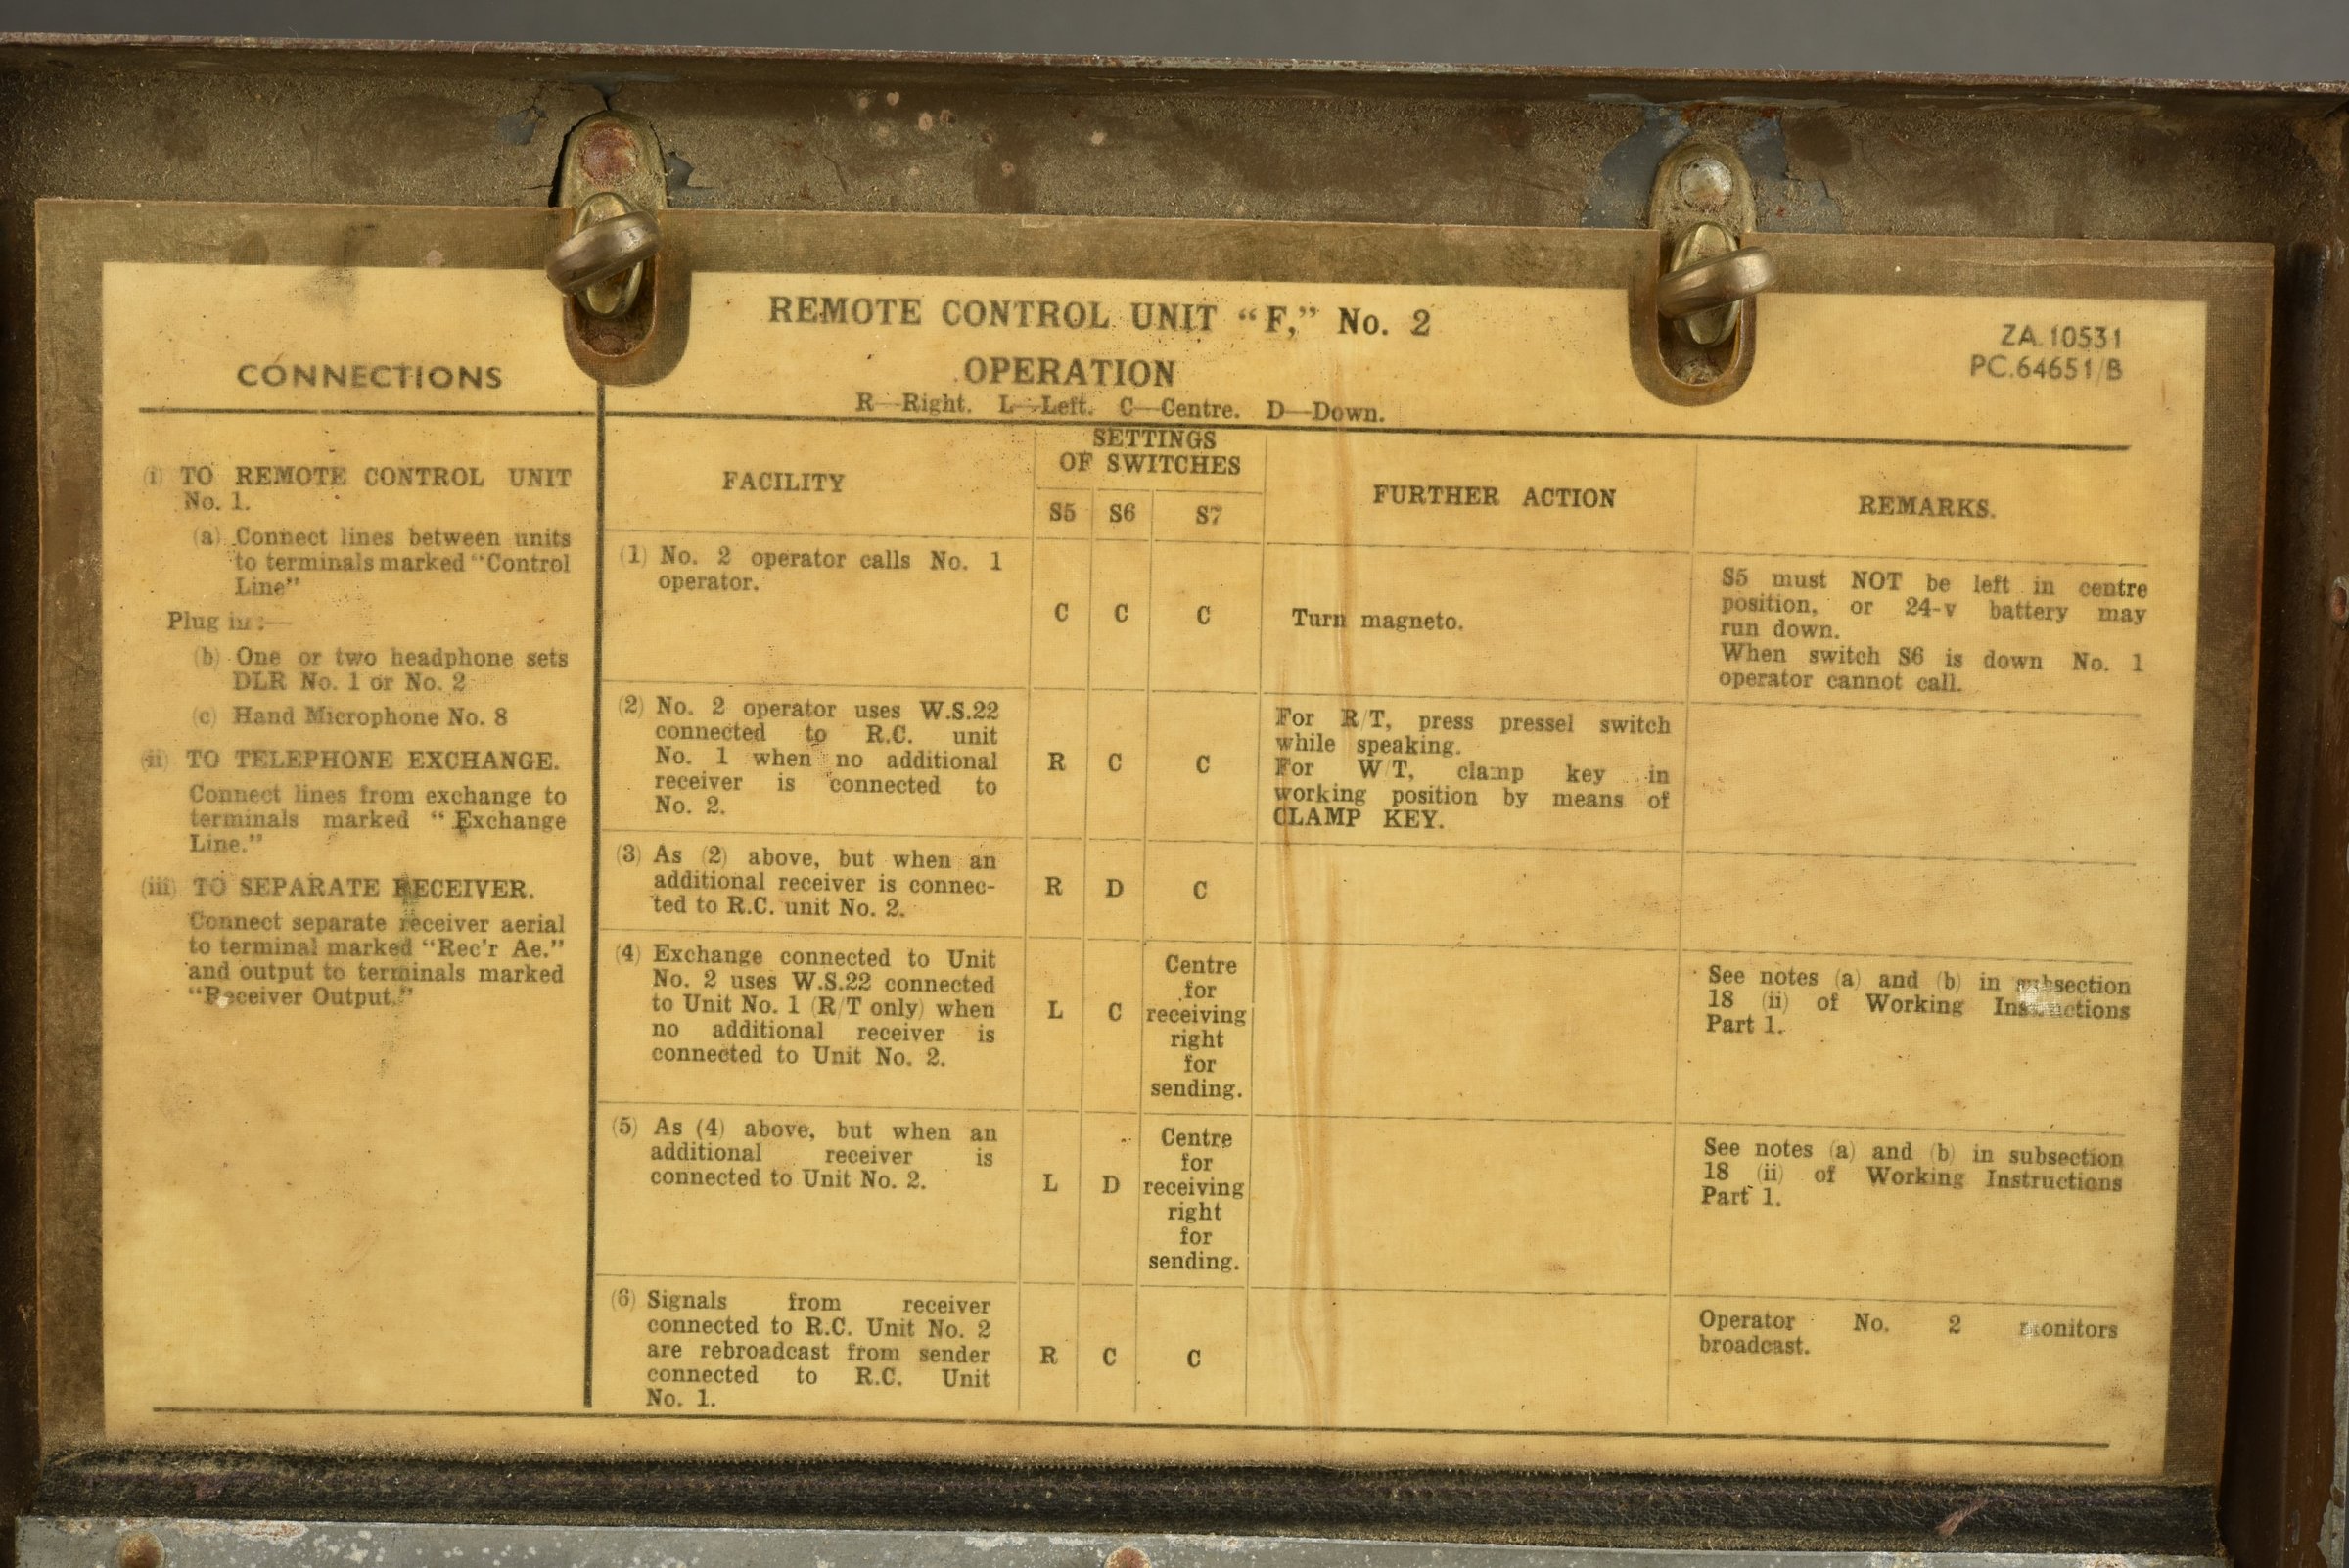 REMOTE CONTROL UNIT “F,” No. 2
ZA.10531
PC.64651/B
CONNECTIONS
OPERATION
R—Right. L—Left. C—Centre. D—Down.
(i) TO REMOTE CONTROL UNIT
No. 1.
(a) Connect lines between units
to terminals marked “Control
Line”
Plug in :—
(b) One or two headphone sets
DLR No. 1 or No. 2
(c) Hand Microphone No. 8
(ii) TO TELEPHONE EXCHANGE.
Connect lines from exchange to
terminals marked “ Exchange
Line.”
(iii) TO SEPARATE RECEIVER.
Connect separate receiver aerial
to terminal marked “Rec'r Ae.”
and output to terminals marked
“Receiver Output.”
FACILITY
SETTINGS
OF SWITCHES
S5 S6 S7
FURTHER ACTION
REMARKS.
(1) No. 2 operator calls No. 1
operator.
C C C
Turn magneto.
S5 must NOT be left in centre
position, or 24-v battery may
run down.
When switch S6 is down No. 1
operator cannot call.
(2) No. 2 operator uses W.S.22
connected to R.C. unit
No. 1 when no additional
receiver is connected to
No. 2.
R C C
For R/T, press pressel switch
while speaking.
For W/T, clamp key in
working position by means of
CLAMP KEY.
(3) As (2) above, but when an
additional receiver is connec-
ted to R.C. unit No. 2.
R D C
(4) Exchange connected to Unit
No. 2 uses W.S.22 connected
to Unit No. 1 (R/T only) when
no additional receiver is
connected to Unit No. 2.
L C
Centre
for
receiving
right
for
sending.
See notes (a) and (b) in subsection
18 (ii) of Working Instructions
Part 1.
(5) As (4) above, but when an
additional receiver is
connected to Unit No. 2.
L D
Centre
for
receiving
right
for
sending.
See notes (a) and (b) in subsection
18 (ii) of Working Instructions
Part 1.
(6) Signals from receiver
connected to R.C. Unit No. 2
are rebroadcast from sender
connected to R.C. Unit
No. 1.
R C C
Operator No. 2 monitors
broadcast.